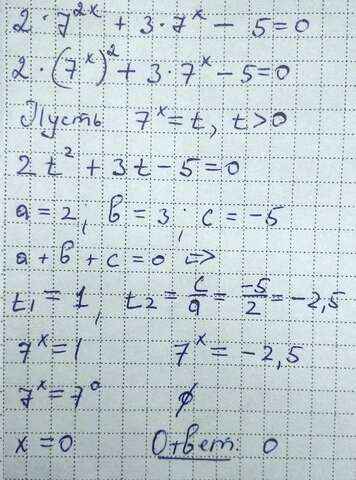 2·7^{2x} + 3·7^x − 5=0
2·(7^x)^2 + 3·7^x − 5=0
Пусть 7^x=t, t>0
2t^2 + 3t − 5=0
a=2; b=3; c=−5
a+b+c=0 =>
t₁=1, t₂=c/a=−5/2=−2,5
7^x=1 7^x=−2,5
7^x=7^0 ∅
x=0 Ответ: 0